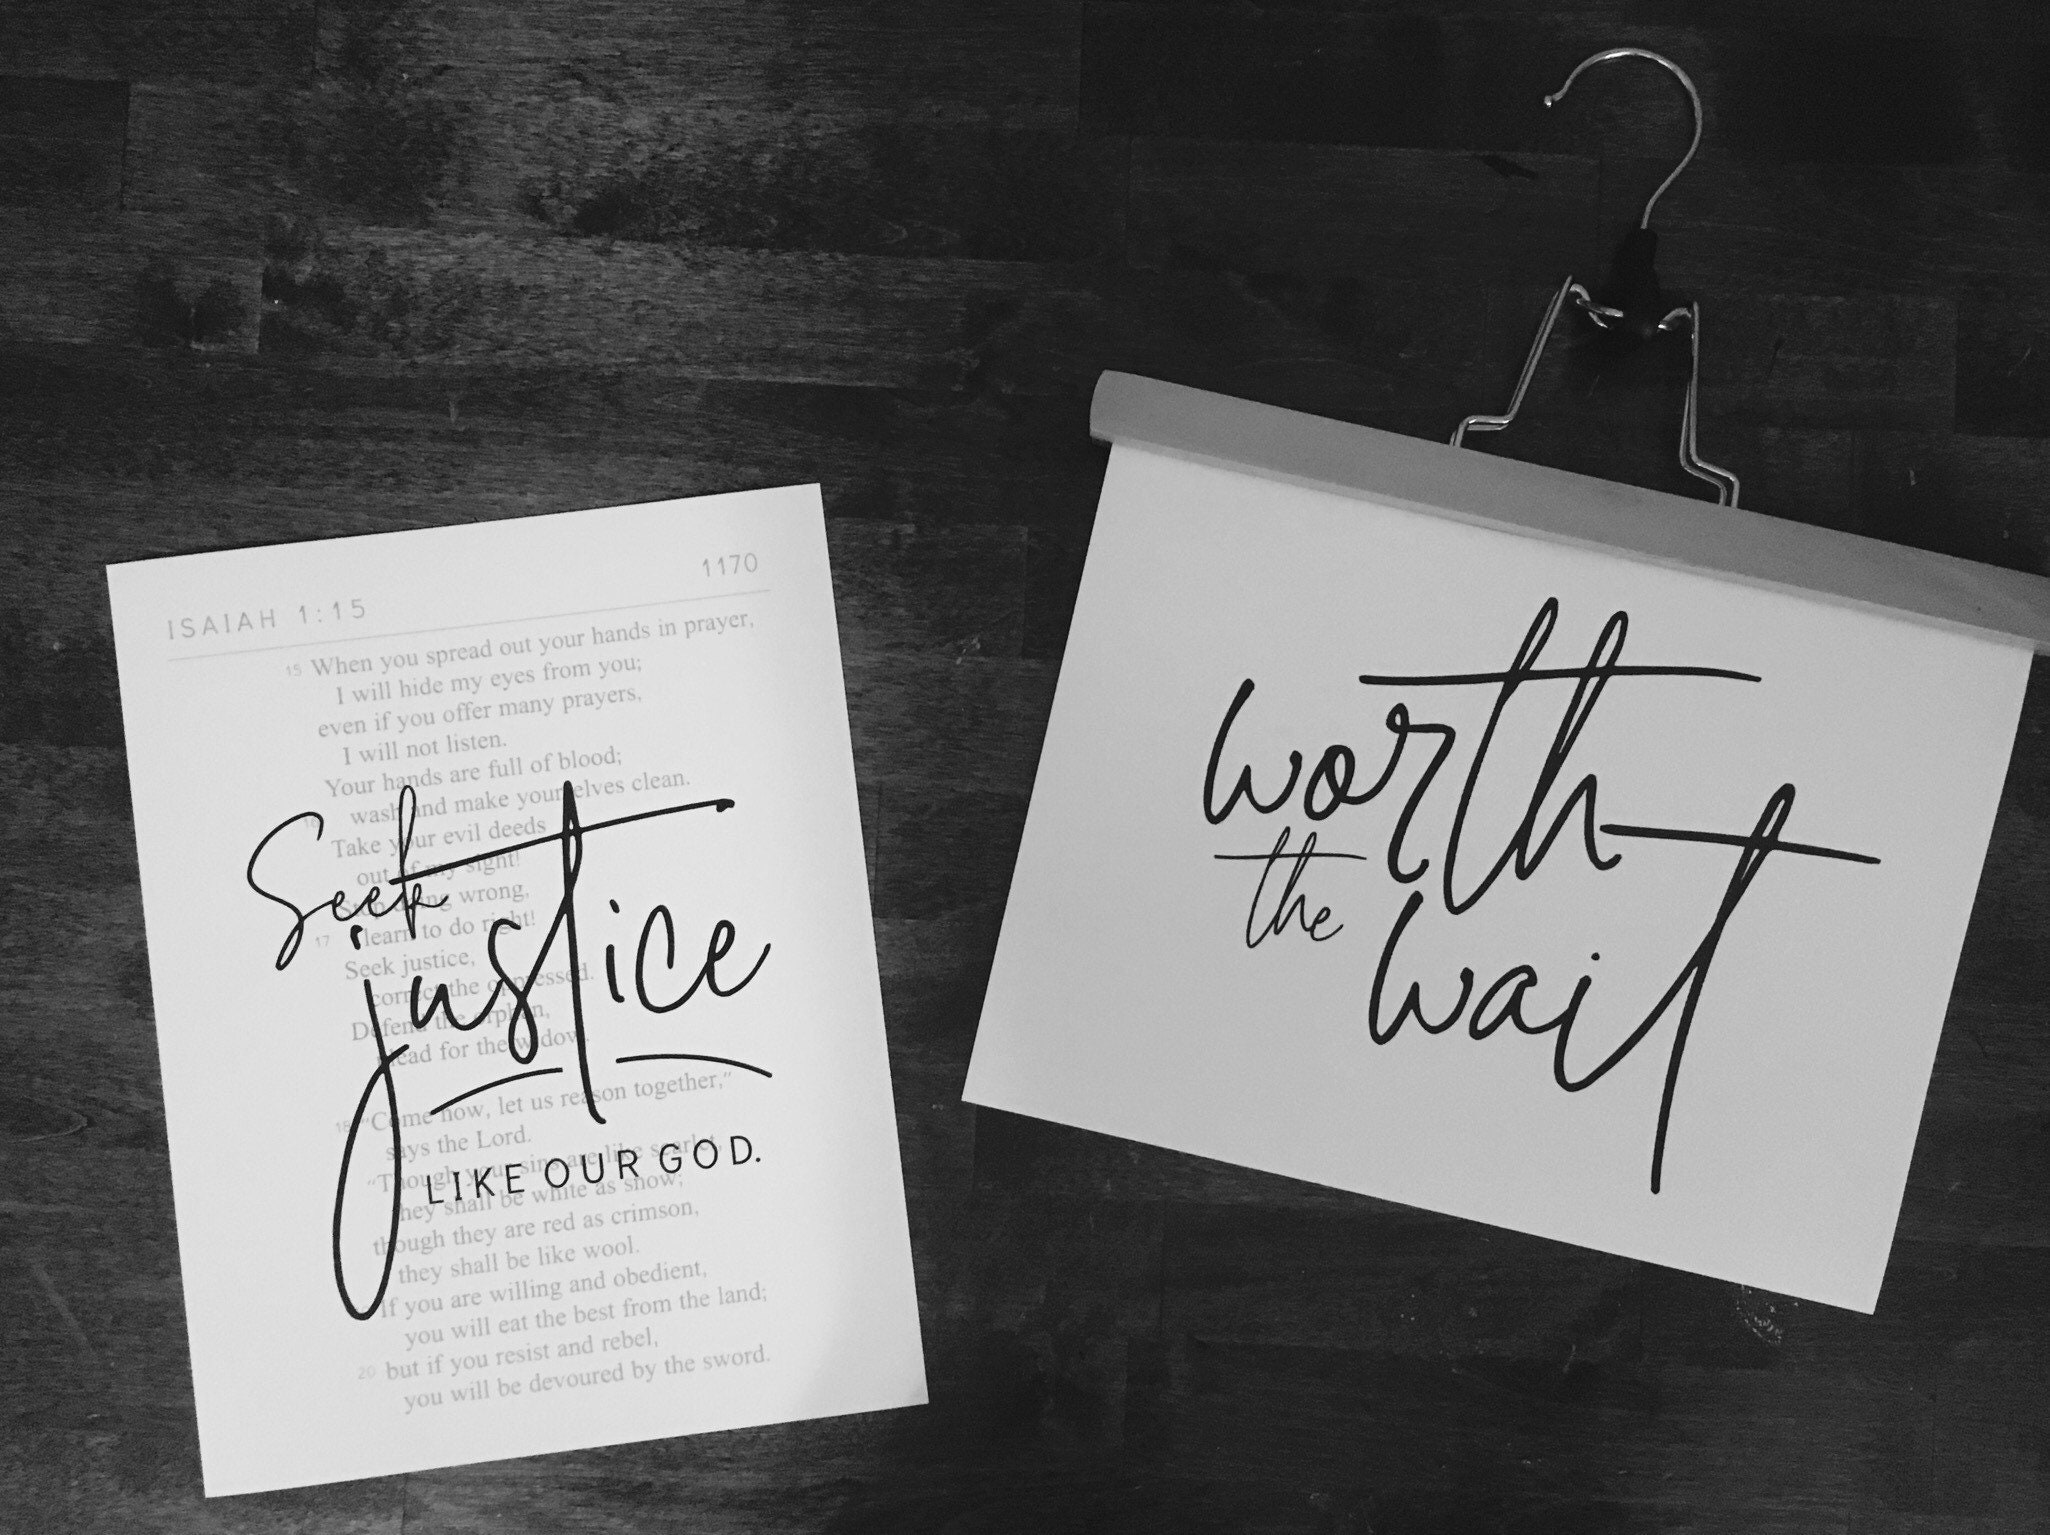 ISAIAH 1:15
1170
15 When you spread out your hands in prayer,
I will hide my eyes from you;
even if you offer many prayers,
I will not listen.
Your hands are full of blood;
wash and make yourselves clean.
Take your evil deeds
out of my sight!
Stop doing wrong,
17 learn to do right!
Seek justice,
correct the oppressed.
Defend the orphan,
plead for the widow.
18 "Come now, let us reason together,"
says the Lord.
"Though your sins are like scarlet,
they shall be white as snow;
though they are red as crimson,
they shall be like wool.
If you are willing and obedient,
you will eat the best from the land;
20 but if you resist and rebel,
you will be devoured by the sword.
Seek
justice
LIKE OUR GOD.
worth
the
wait